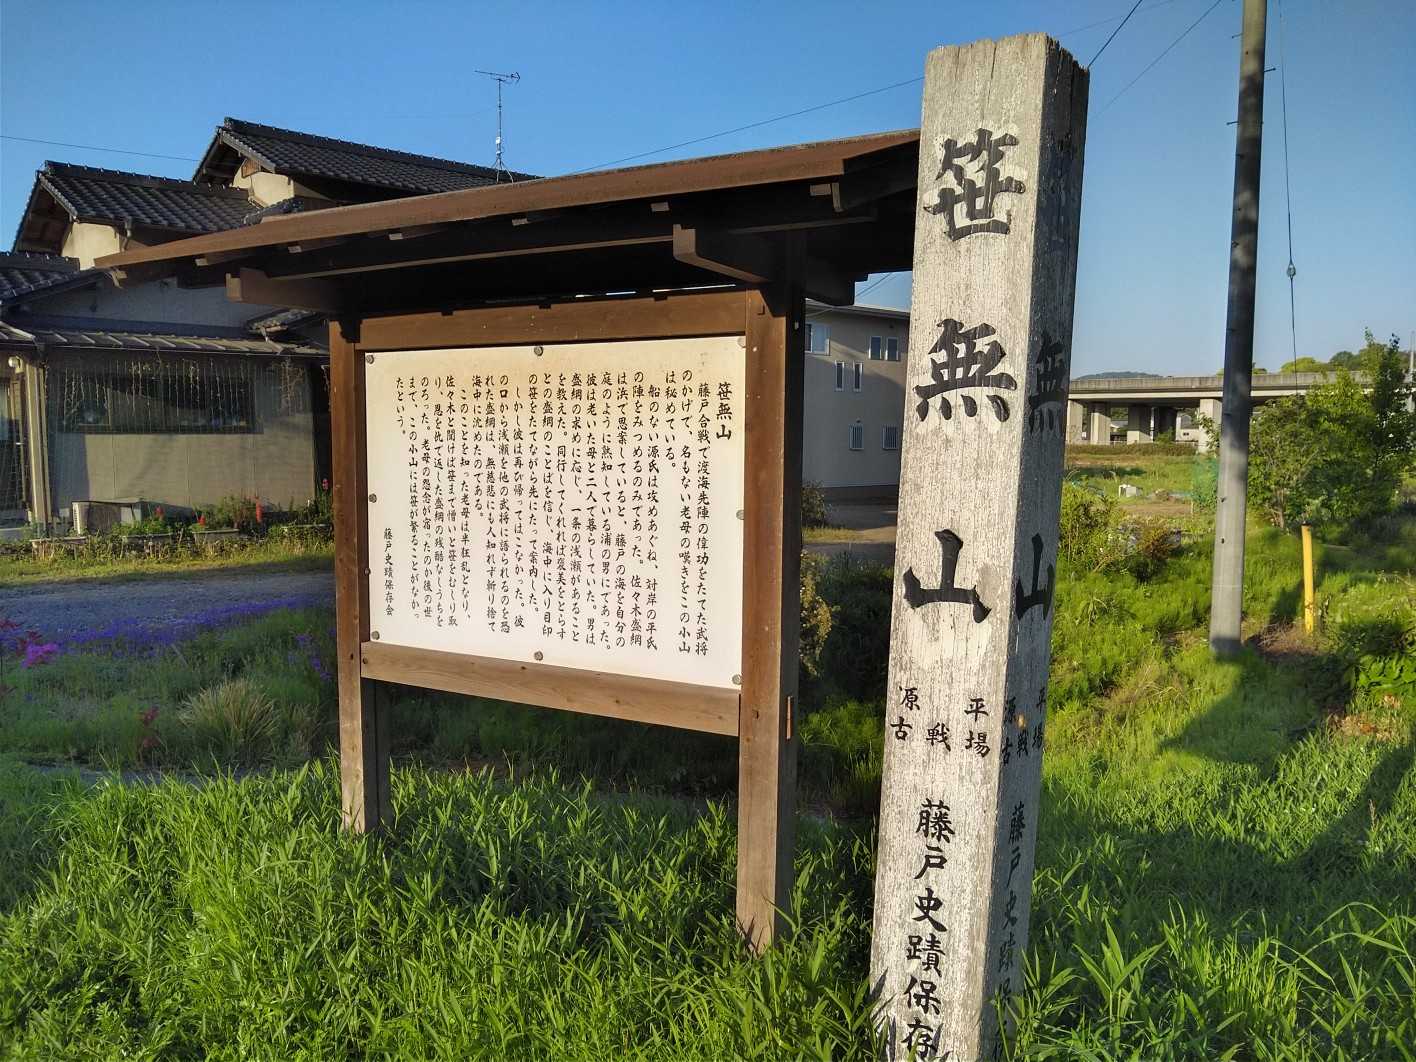 笹無山
藤戸合戦で渡海先陣の偉功をたてた武将
のかげで、名もない老母の嘆きをこの小山
は秘めている。
船のない源氏は攻めあぐね、対岸の平氏
の陣をみつめるのみであった。佐々木盛綱
は浜で思案していると、藤戸の海を自分の
庭のように熟知している浦の男にであった。
彼は老いた母と二人で暮らしていた。男は
盛綱の求めに応じ、一条の浅瀬があること
を教えた。同行してくれれば褒美をとらす
との盛綱のことばを信じ、海中に入り目印
の笹をたてながら先にたって案内した。
しかし、彼は再び帰ってはこなかった。彼
の口から浅瀬を他の武将に語られるのを恐
れた盛綱は、無慈悲にも人知れず斬り捨て
海中に沈めたのである。
このことを知った老母は半狂乱となり、
佐々木と聞けば笹まで憎いと笹をむしり取
り、恩を仇で返した盛綱の残酷なしうちを
のろった。老母の怨念が宿ったのか後の世
まで、この小山には笹が繁ることがなかっ
たという。
藤戸史蹟保存会
笹無山
源平
古戦場
藤戸史蹟保存
無山
源平
古戦場
藤戸史蹟保